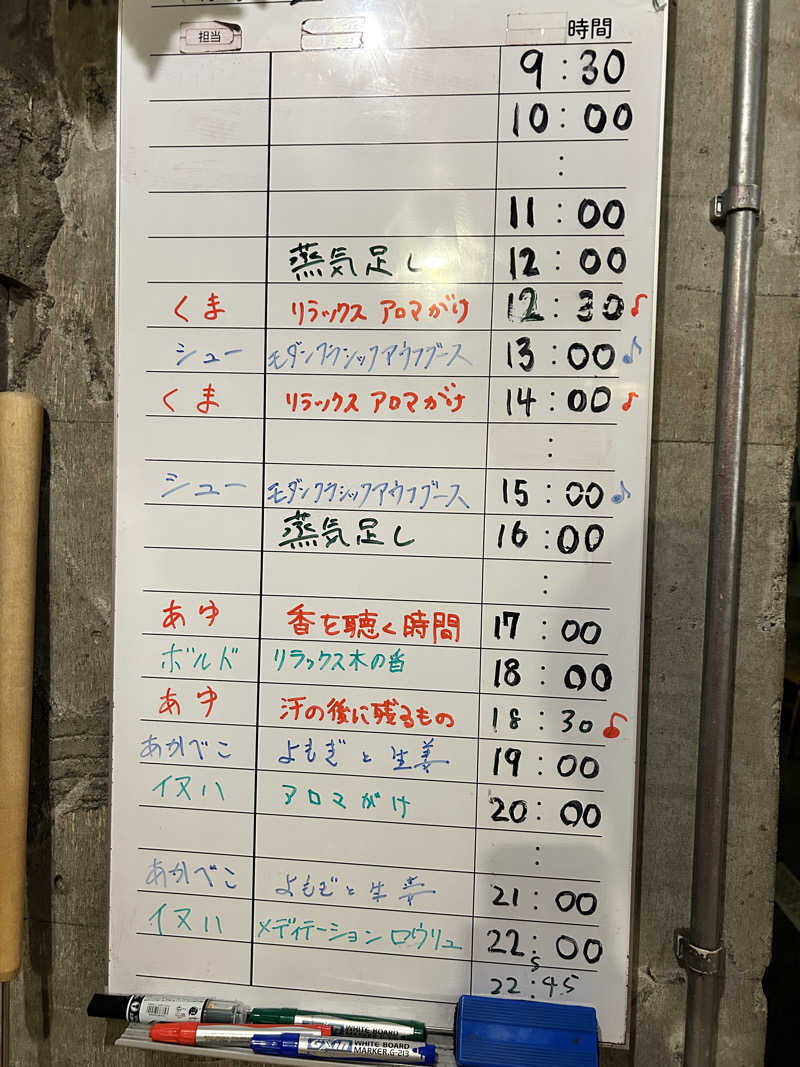 担当 時間
9:30
10:00
:
11:00
蒸気足し 12:00
くま リラックス アロマがけ 12:30♪
シュー モダンクラシックアウフグース 13:00♪
くま リラックス アロマがけ 14:00♪
:
シュー モダンクラシックアウフグース 15:00♪
蒸気足し 16:00
:
あゆ 香を聴く時間 17:00
ボルド リラックス木の香 18:00
あゆ 汗の後に残るもの 18:30♪
あかべこ よもぎと生姜 19:00
イヌハ アロマがけ 20:00
:
あかべこ よもぎと生姜 21:00
イヌハ メディテーション ロウリュ 22:00
S
22:45
WHITE BOARD
WHITE BOARD
MARKER